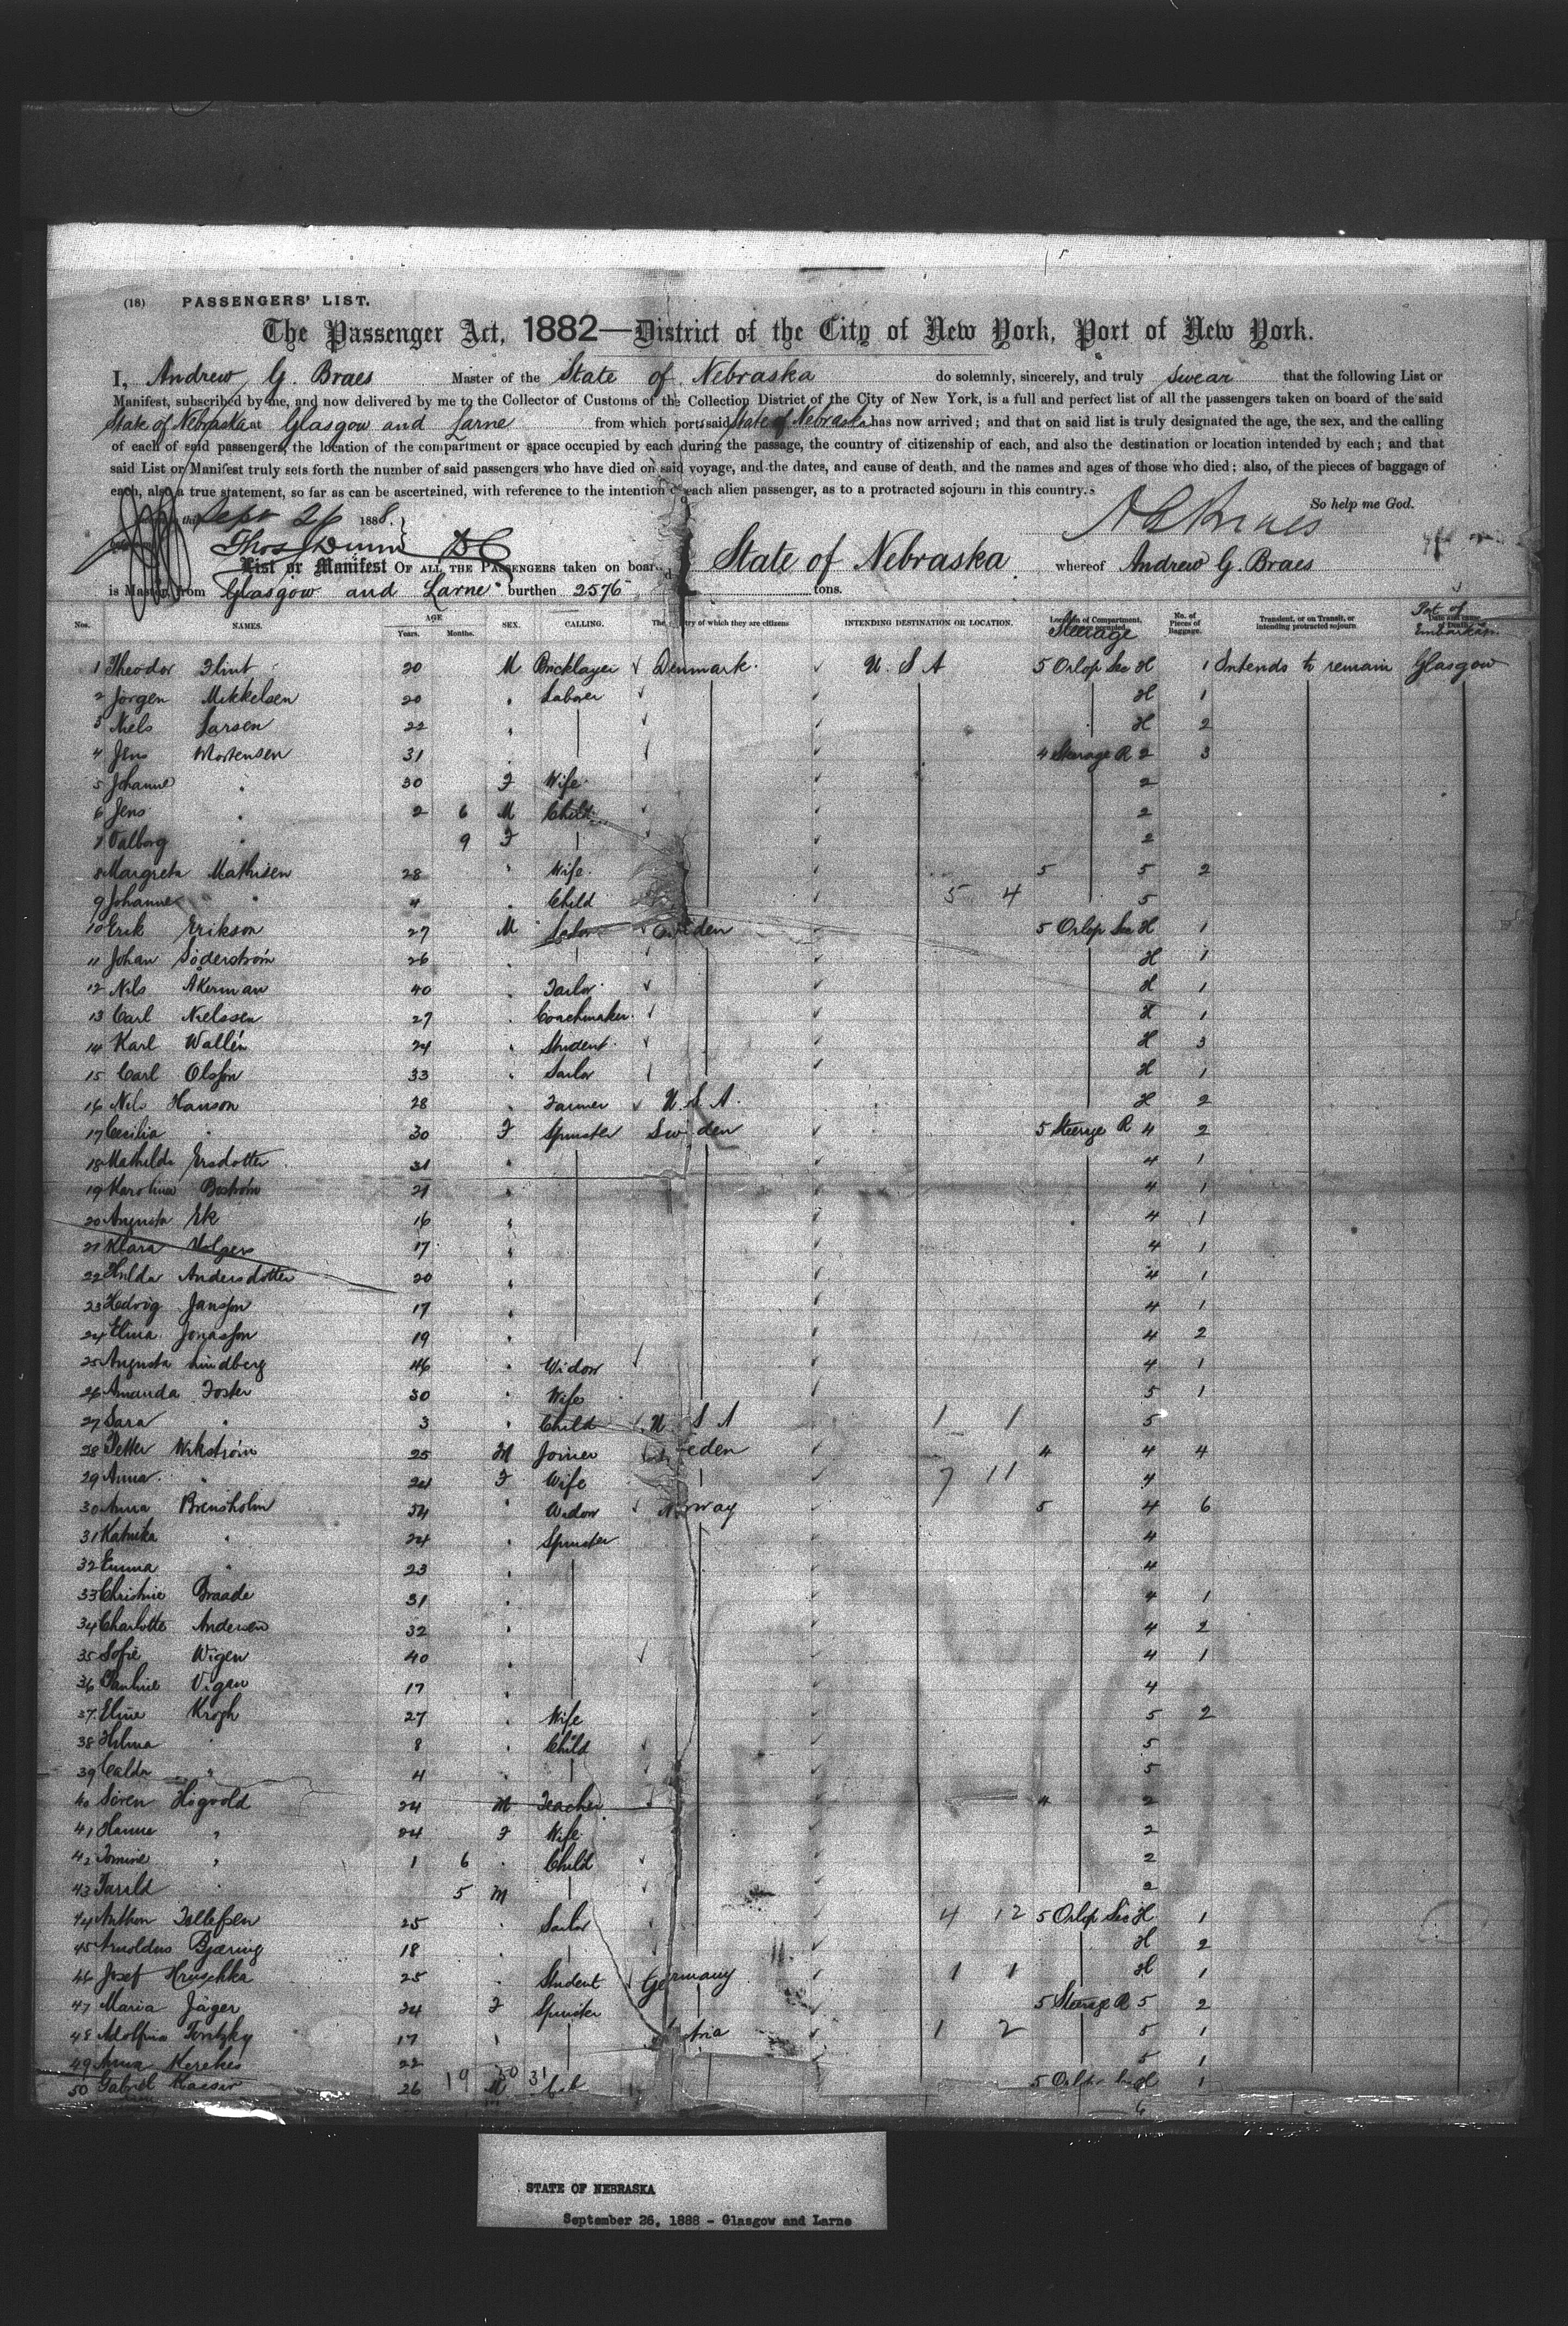 (18) PASSENGERS' LIST.
The Passenger Act, 1882—District of the City of New York, Port of New York.
I, Andrew G. Braes Master of the State of Nebraska do solemnly, sincerely, and truly swear that the following List or
Manifest, subscribed by me, and now delivered by me to the Collector of Customs of the Collection District of the City of New York, is a full and perfect list of all the passengers taken on board of the said
State of Nebraska at Glasgow and Larne from which port said State of Nebraska has now arrived; and that on said list is truly designated the age, the sex, and the calling
of each of said passengers, the location of the compartment or space occupied by each during the passage, the country of citizenship of each, and also the destination or location intended by each; and that
said List or Manifest truly sets forth the number of said passengers who have died on said voyage, and the dates, and cause of death, and the names and ages of those who died; also, of the pieces of baggage of
each, also a true statement, so far as can be ascertained, with reference to the intention of each alien passenger, as to a protracted sojourn in this country.
So help me God.
this Sept 26 1888.
Thos Dunn DC
List or Manifest OF ALL THE PASSENGERS taken on board State of Nebraska whereof Andrew G. Braes
is Master, from Glasgow and Larne burthen 2576 tons.
Nos. NAMES. AGE Years. Months. SEX. CALLING. The country of which they are citizens INTENDING DESTINATION OR LOCATION. Location of Compartment, Steerage No. of Pieces of Baggage. Transient, or on Transit, or intending protracted sojourn Port of Embarkn.
1 Theodor Flint 20 M Bricklayer Denmark U. S. A 5 Orlop Sec H 1 Intends to remain Glasgow
2 Jorgen Mikkelsen 20 " Laborer H 1
3 Niels Larsen 22 " H 2
4 Jens Mortensen 31 4 Steerage R 2 3
5 Johanne " 30 F Wife 2
6 Jens " 2 6 M Child 2
7 Valborg " 9 F 2
8 Margreta Mathisen 28 " Wife 5 5 2
9 Johanne " 4 " Child 5 4 5
10 Erik Erikson 27 M Sweden 5 Orlop Sec H 1
11 Johan Söderström 26 " H 1
12 Nils Åkerman 40 " Tailor H 1
13 Carl Nielssen 27 " Coachmaker H 1
14 Karl Wallén 24 " Student H 3
15 Carl Olsson 33 " Sailor H 1
16 Nils Hanson 28 " Farmer U. S. A. H 2
17 Cecilia " 30 F Spinster Sweden 5 Steerage R 4 2
18 Mathilda Ersdotter 31 " 4 1
19 Karolina Boström 21 " 4 1
20 Augusta Ek 16 " 4 1
21 Klara 17 " 4 1
22 Hilda Andersdotter 20 " 4 1
23 Hedvig Jansson 17 " 4 1
24 Elina Jonasson 19 " 4 2
25 Augusta Lindberg 46 " Widow 4 1
26 Amanda Foster 30 " Wife 5 1
27 Sara " 3 " Child U S A 1 1 5
28 Petter Wikström 25 M Joiner Sweden 4 4 4
29 Anna " 24 F Wife 7 11 4
30 Anna Brensholm 54 " Widow Norway 5 4 6
31 Katrika " 24 " Spinster 4
32 Emma " 23 " 4
33 Christine Braade 31 " 4 1
34 Charlotte Andersen 32 " 4 2
35 Sofie Wigen 40 " 4 1
36 Pauline Vigan 17 " 4
37 Eline Krogh 27 " Wife 5 2
38 Hilma " 8 " Child 5
39 Calda " 4 " 5
40 Soren Hogvold 24 M Teacher 4 2
41 Hanne " 24 F Wife 2
42 Tomine " 1 6 " Child 2
43 Tarald " 5 M 2
44 Anthon Tollefsen 25 " Sailor 4 12 5 Orlop Sec H 1
45 Arnoldus Bjæring 18 " H 2
46 Josef Hruschka 25 " Student Germany 1 1 H 1
47 Maria Jäger 24 F Spinster 5 Steerage R 5 2
48 Adolfina 17 " 1 2 5 1
49 Anna Kerekes 22 5 1
50 Gabriel Kaeser 26 M 5 Orlop H 1
19 30 31
STATE OF NEBRASKA
September 26, 1888 - Glasgow and Larne